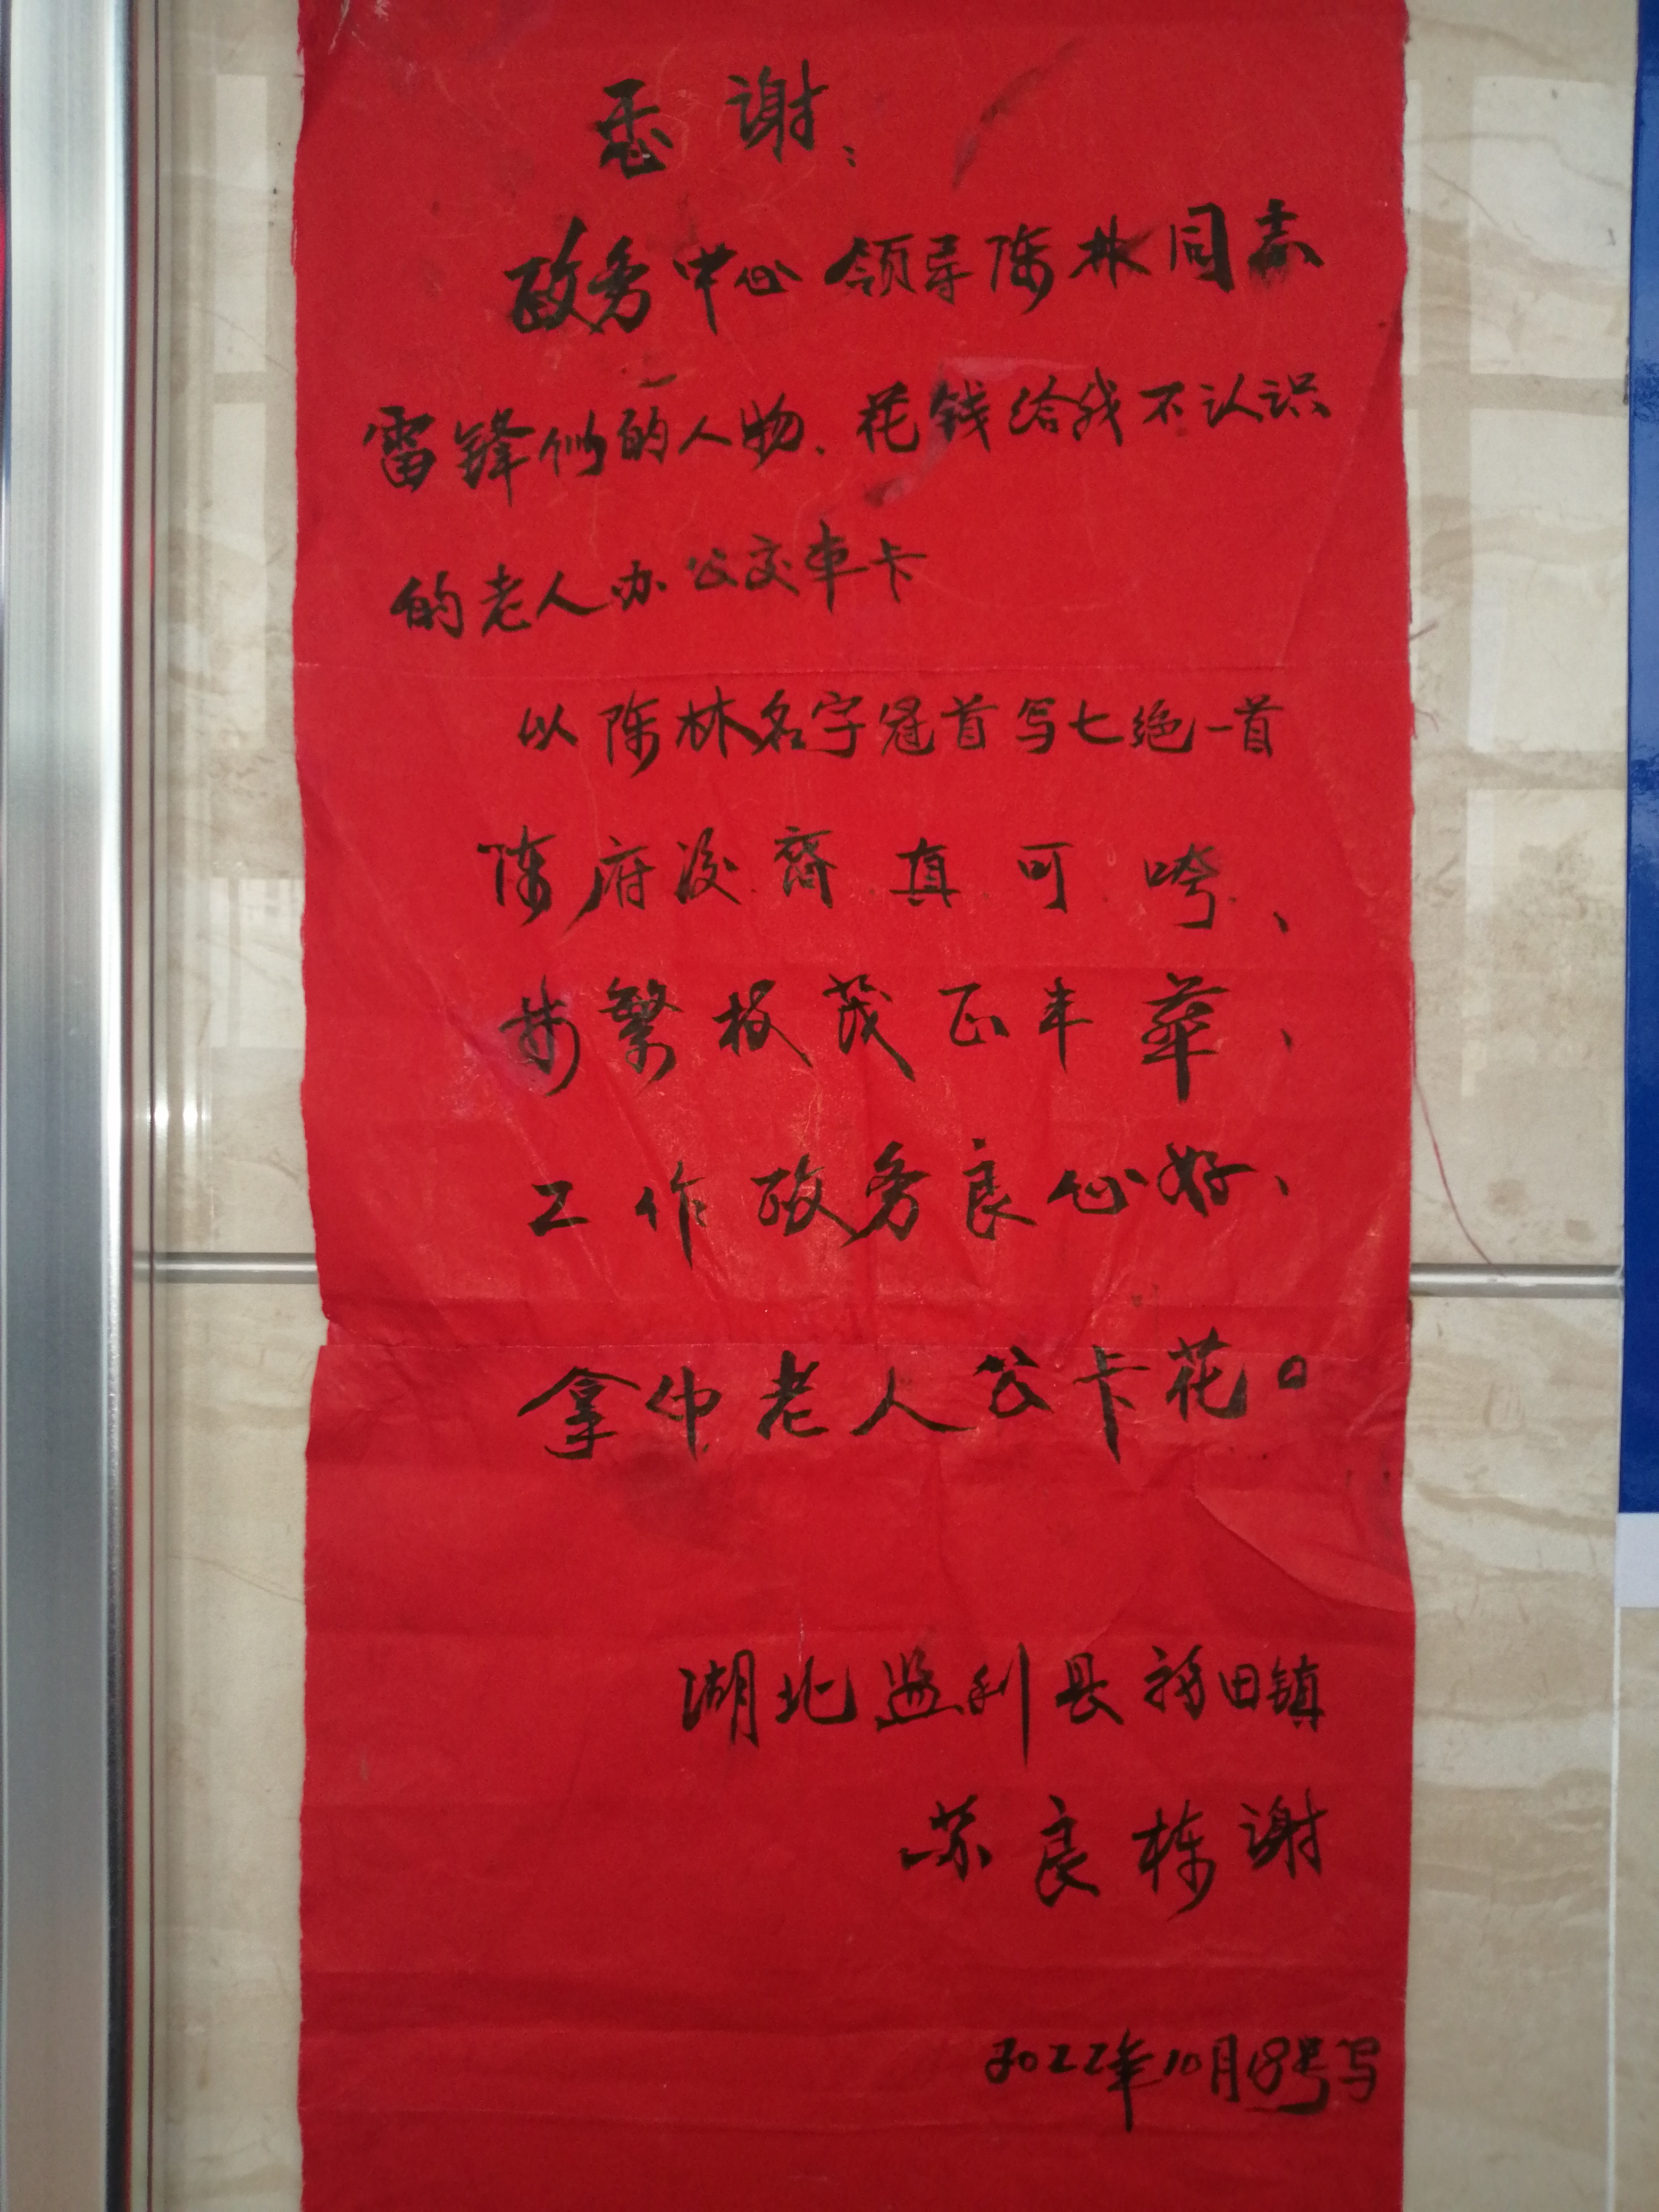 感谢：
政务中心领导陈林同志
雷锋似的人物、花钱给我不认识
的老人办公交车卡
以陈林名字冠首写七绝一首
陈府浚齐真可夸、
林繁枝茂正丰华、
工作政务良心好、
拿仲老人公卡花。
湖北监利县福田镇
苏良栋谢
2022年10月18号写